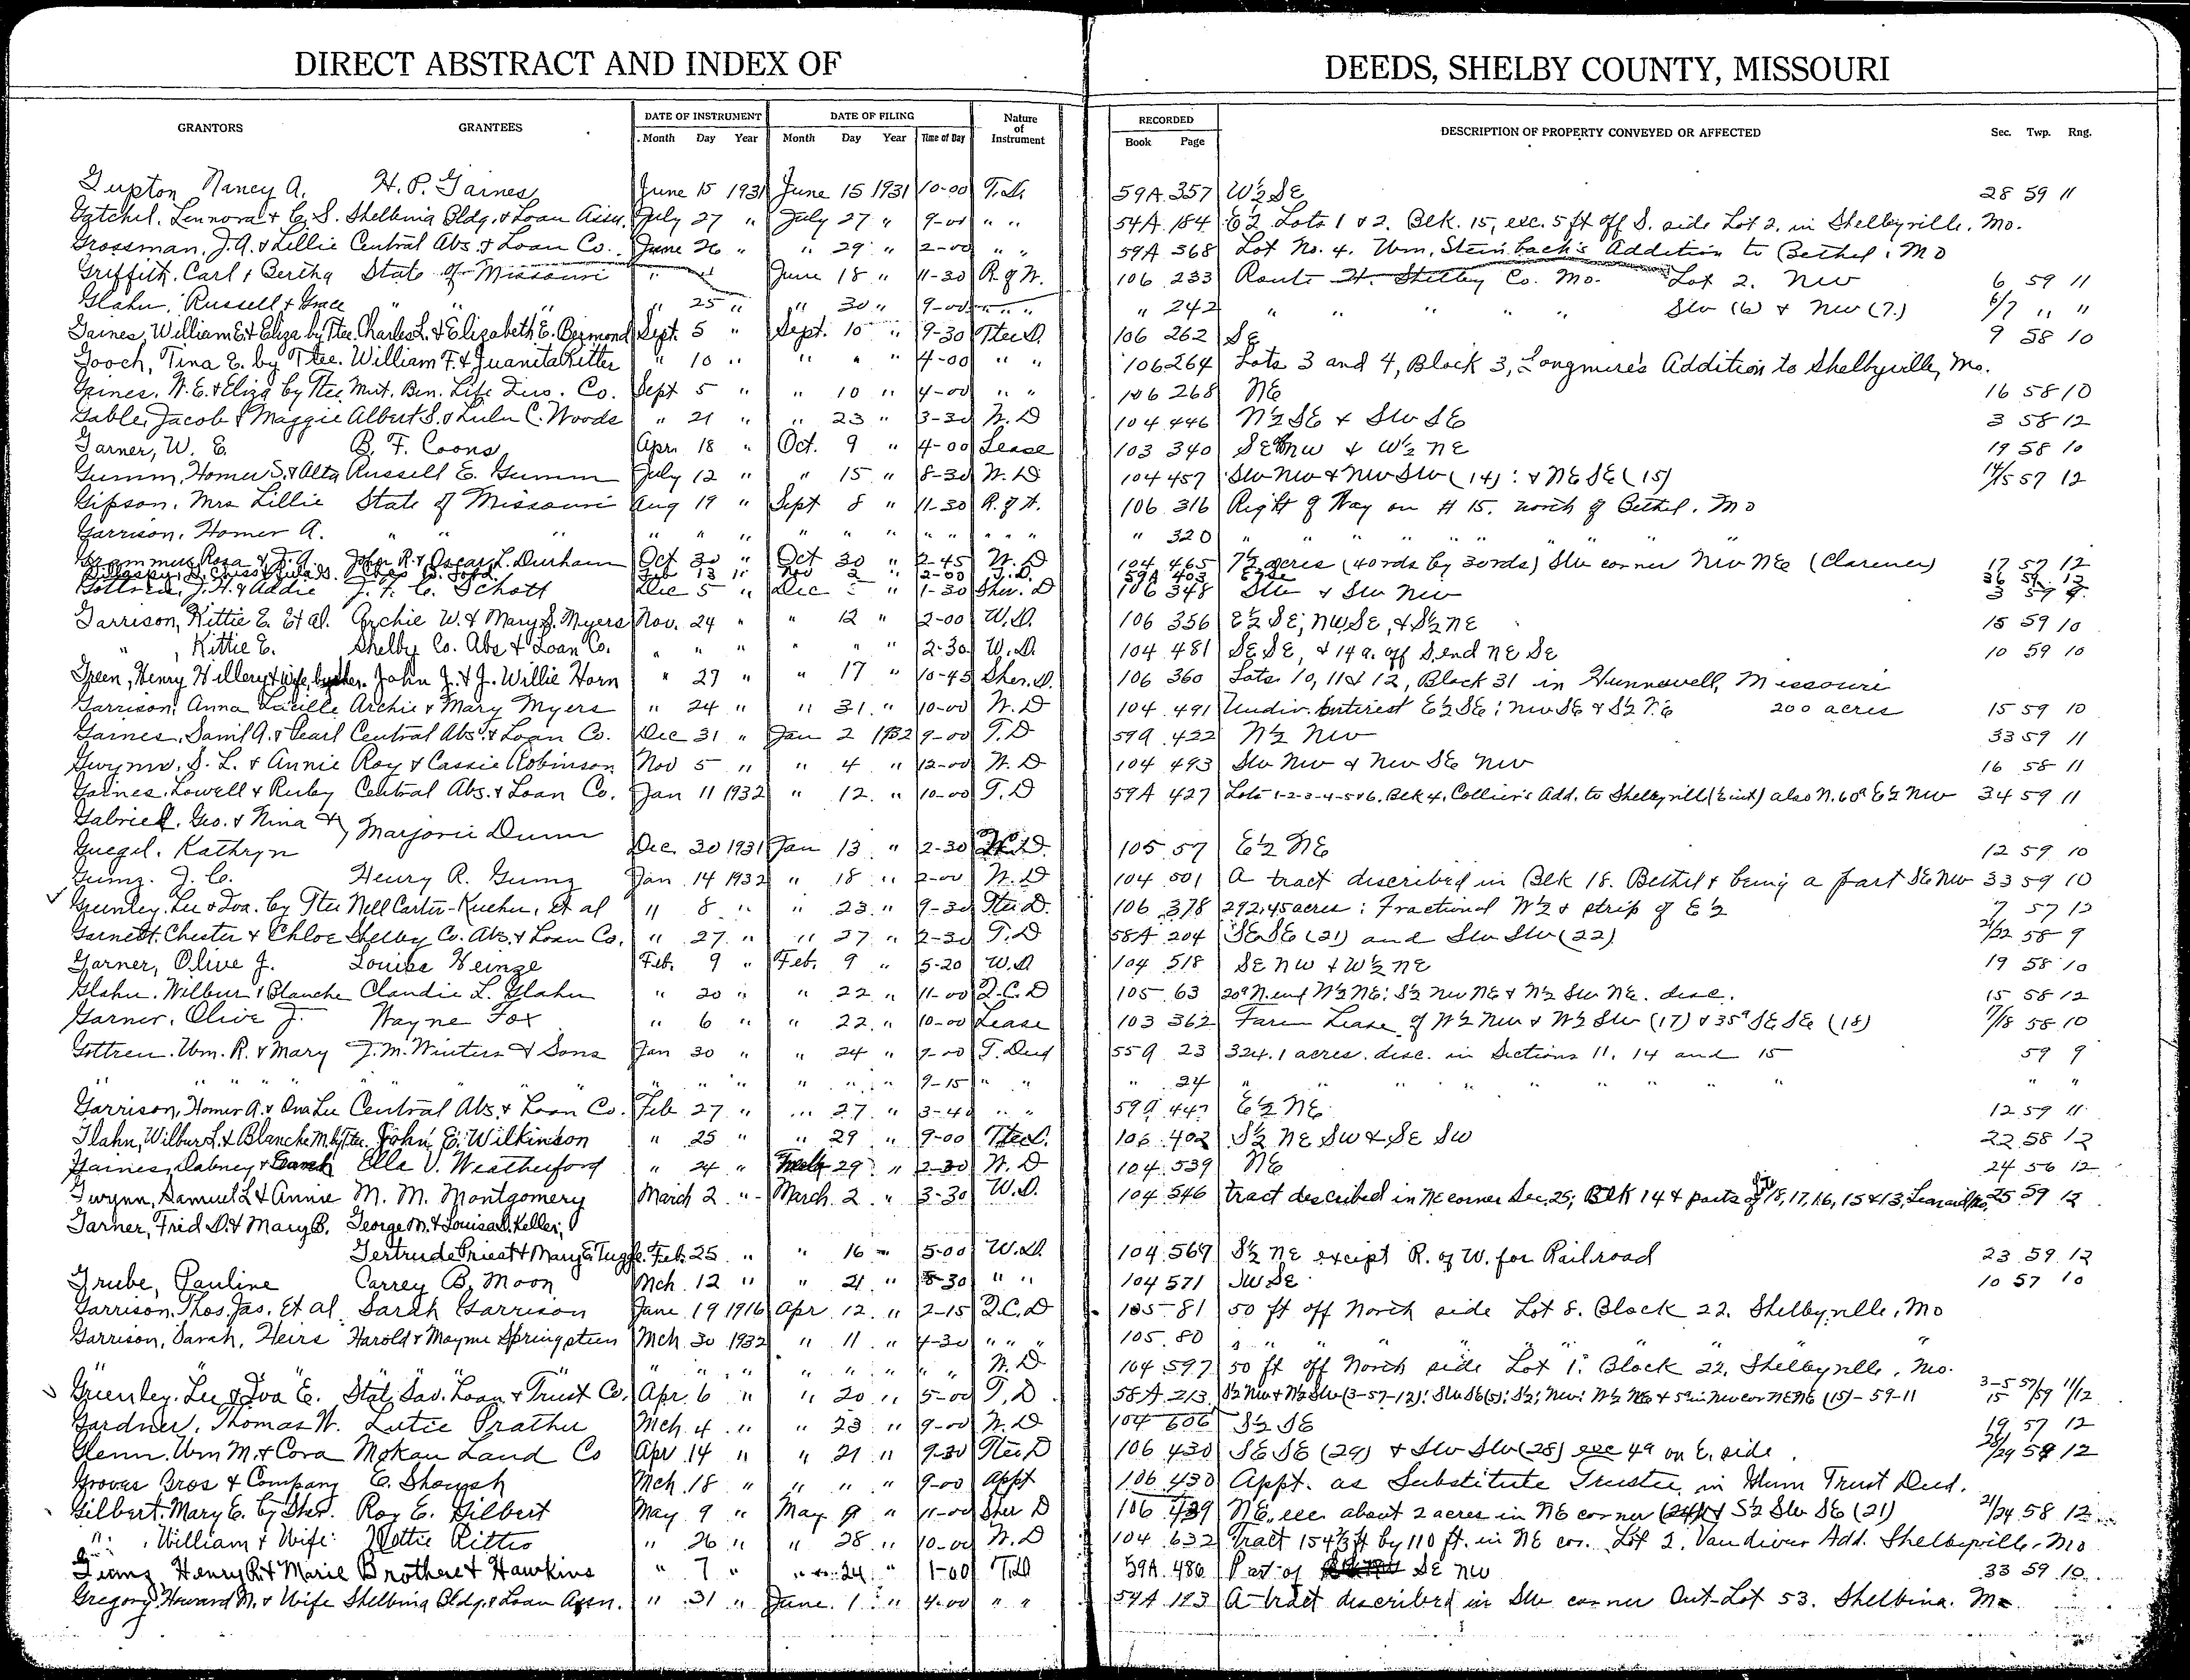 DIRECT ABSTRACT AND INDEX OF DEEDS, SHELBY COUNTY, MISSOURI
GRANTORS GRANTEES DATE OF INSTRUMENT DATE OF FILING Nature of Instrument RECORDED DESCRIPTION OF PROPERTY CONVEYED OR AFFECTED Sec. Twp. Rng.
Month Day Year Month Day Year Time of Day Book Page
Gupton Nancy A. H. P. Gaines June 15 1931 June 15 1931 10-00 T.D. 59A 357 W½ SE 28 59 11
Gatchel. Lennora & C. S. Shelbina Bldg. & Loan Assn. July 27 " July 27 " 9-00 " " 54A 184 E½ Lots 1 & 2. Blk. 15, exc. 5 ft off S. side Lot 2, in Shelbyville. Mo.
Grossman, J.A. & Lillie Central Abs. & Loan Co. June 26 " " 29 " 2-00 " " 59A 368 Lot No. 4. Wm. Steinbach's Addition to Bethel, Mo
Griffith. Carl & Bertha State of Missouri " June 18 " 11-30 R. of W. 106 233 Route H. Shelby Co. Mo. Lot 2. NW 6 59 11
Glahn, Russell & Grace " " " 25 " " 30 " 9-00 " " " " 242 " " " " " SW (6) & NW (7.) 6/7 " "
Gaines, William E. & Eliza by Ttee. Charles L. & Elizabeth E. Bezmond Sept. 5 " Sept. 10 " 9-30 Ttee D. 106 262 SE 9 58 10
Gooch, Tina E. by Ttee. William F. & Juanita Ritter " 10 " " " " 4-00 " " 106 264 Lots 3 and 4, Block 3, Longmire's Addition to Shelbyville, Mo.
Gaines. W. E. & Eliza by Ttee Mut. Ben. Life Ins. Co. Sept 5 " " 10 " 4-00 " " 106 268 NE 16 58 10
Gable, Jacob & Maggie Albert S. & Lulu C. Woods " 21 " " 23 " 3-30 W. D 104 446 N½ SE & SW SE 3 58 12
Garner, W. E. B. F. Coons Apr. 18 " Oct. 9 " 4-00 Lease 103 340 SE NW & W½ NE 19 58 10
Gumm, Homer S. & Alta Russell E. Gumm July 12 " " 15 " 8-30 W. D 104 457 SW NW & NW SW (14): & NE SE (15) 14/15 57 12
Gipson, Mrs Lillie State of Missouri Aug 19 " Sept 8 " 11-30 R. of W. 106 316 Right of Way on # 15. north of Bethel. Mo
Garrison, Homer A. " " " " " " " " " " " " " 320 " " " " " " "
Rosa & J. A. John R. & Oscar L. Durham Oct 30 " Oct 30 " 2-45 W. D 104 465 7½ acres (40 rds by 30 rds) SW corner NW NE (Clarence) 17 57 12
13 " Nov 2 " 2-00 T. D. 59A 403 E½ SE 36 59 12
J. H. & Addie J. F. C. Schott Dec 5 " Dec " 1-30 Sher. D 106 348 SW & SW NW 3 59 9
Garrison, Kittie E. Et al. Archie W. & Mary S. Myers Nov. 24 " " 12 " 2-00 W.D. 106 356 E½ SE; NW SE, & S½ NE 15 59 10
" , Kittie E. Shelby Co. Abs & Loan Co. " " " " " " 2-30 W.D. 104 481 SE SE, & 14 a. off S. end NE SE 10 59 10
Green, Henry Hillery & wife, by Sher. John J. & J. Willie Horn " 27 " " 17 " 10-45 Sher. D. 106 360 Lots 10, 11 & 12, Block 31 in Hunnewell, Missouri
Garrison, Anna Lucille Archie & Mary Myers " 24 " " 31 " 10-00 W. D 104 491 Undiv. Interest E½ SE; NW SE & S½ NE 200 acres 15 59 10
Gaines, Saml A. & Pearl Central Abs. & Loan Co. Dec 31 " Jan 2 1932 9-00 T. D 59A 422 N½ NW 33 59 11
Gwynn, S. L. & Annie Roy & Cassie Robinson Nov 5 " " 4 " 12-00 W. D 104 493 SW NW & NW SE NW 16 58 11
Gaines, Lowell & Ruby Central Abs. & Loan Co. Jan 11 1932 " 12 " 10-00 T. D 59A 427 Lots 1-2-3-4-5 & 6. Blk 4, Collier's Add. to Shelbyville (½ int) also N. 60ª E½ NW 34 59 11
Gabriel. Geo. & Nina &
Guegel. Kathryn Marjorie Dunn Dec. 30 1931 Jan 13 " 2-30 W.D. 105 57 E½ NE 12 59 10
Gumz. J. C. Henry R. Gumz Jan 14 1932 " 18 " 2-00 W. D 104 501 A tract described in Blk 18. Bethel & being a part SE NW 33 59 10
Greenley. Lee & Iva. by Ttee Nell Carter-Kuehn, Et al " 8 " " 23 " 9-30 Ttee D. 106 378 292.45 acres: Fractional W½ & strip of E½ 7 57 12
Garnett. Chester & Chloe Shelby Co. Abs. & Loan Co. " 27 " " 27 " 2-30 T. D 58A 204 SE SE (21) and SW SW (22) 21/22 58 9
Garner, Olive J. Louise Heinze Feb. 9 " Feb. 9 " 5-20 W.D 104 518 SE NW & W½ NE 19 58 10
Glahn. Wilbur & Blanche Claudie L. Glahn " 20 " " 22 " 11-00 Q.C.D 105 63 20ª N. end W½ NE: S½ NW NE & N½ SW NE. desc. 15 58 12
Garner. Olive J. Wayne Fox " 6 " " 22 " 10-00 Lease 103 362 Farm Lease of W½ NW & W½ SW (17) & 35ª SE SE (18) 17/18 58 10
Gottren. Wm. R. & Mary J. M. Winters & Sons Jan 30 " " 24 " 9-00 T. Deed 55A 23 324.1 acres. desc. in Sections 11, 14 and 15 59 9
" " " " " " " " " " " " " 9-15 " " " 24 " " " " " " " " " "
Garrison, Homer A. & Ona Lee Central Abs. & Loan Co. Feb 27 " " 27 " 3-40 " " 59A 447 E½ NE 12 59 11
Glahn, Wilbur L. & Blanche M. by Ttee. John E. Wilkinson " 25 " " 29 " 9-00 Ttee D. 106 402 S½ NE SW & SE SW 22 58 12
Gaines, Dabney & Sarah Ella V. Weatherford " 24 " 29 " 2-30 W. D 104 539 NE 24 56 12
Gwynn, Samuel L & Annie M. M. Montgomery March 2 " March 2 " 3-30 W.D. 104 546 tract described in NE corner Sec. 25; BLK 14 & parts of 18, 17, 16, 15 & 13, Leonard, Mo. 25 59 12
Garner, Fred D. & Mary B. George M. & Louisa D. Keller,
Gertrude Priest & Mary E. Tuggle. Feb. 25 " " 16 " 5-00 W.D. 104 569 S½ NE except R. of W. for Railroad 23 59 12
Grube, Pauline Carrey B. Moon Mch. 12 " " 21 " 8-30 " " 104 571 SW SE 10 57 10
Garrison, Thos. Jas. Et al Sarah Garrison June 19 1916 Apr 12 " 2-15 Q.C.D 105 81 50 ft off North side Lot 8. Block 22. Shelbyville, Mo
Garrison, Sarah, Heirs Harold & Mayme Springsteen Mch 30 1932 " 11 " 4-30 " " " 105 80 " " " " " " " " "
" " " " " " " " " " W. D 104 597 50 ft off North side Lot 1. Block 22, Shelbyville, Mo.
Greenley. Lee & Iva E. State Sav. Loan & Trust Co. Apr. 6 " " 20 " 5-00 T. D 58A 213 S½ NW & N½ SW (3-57-12): SW SE (5): S½; NW: W½ NE & 5ª in NW cor NE NE (15) - 59-11 3-5 57/ 11/ 15 /59 /12
Gardner, Thomas W. Lutie Prather Mch. 4 " " 23 " 9-00 W. D 104 606 S½ SE 19 57 12
Glenn. Wm M. & Cora Mokan Land Co Apr 14 " " 21 " 9-30 Ttee D 106 430 SE SE (29) & SW SW (28) exc 4ª on E. side 28/29 58 12
Groves Bros & Company E. Shough Mch. 18 " " " " 9-00 Appt 106 430 Appt. as Substitute Trustee in Trust Deed.
Gilbert. Mary E. by Sher. Roy E. Gilbert May 9 " May 9 " 11-00 Sher D 106 439 NE, exc. about 2 acres in NE corner (24) & S½ SW SE (21) 21/24 58 12
" , William & Wife Nettie Ritter " 26 " " 28 " 10-00 W. D 104 632 Tract 154⅔ ft by 110 ft. in NE cor. Lot 2, Vandiver Add. Shelbyville, Mo
Gumz, Henry R. & Marie Brother & Hawkins " 7 " " 24 " 1-00 T.D 59A 486 Part of SE NW 33 59 10
Gregory, Howard M. & Wife Shelbina Bldg. & Loan Assn. " 31 " June 1 " 4-00 " " 54A 193 A tract described in SW corner Out-Lot 53. Shelbina. Mo.